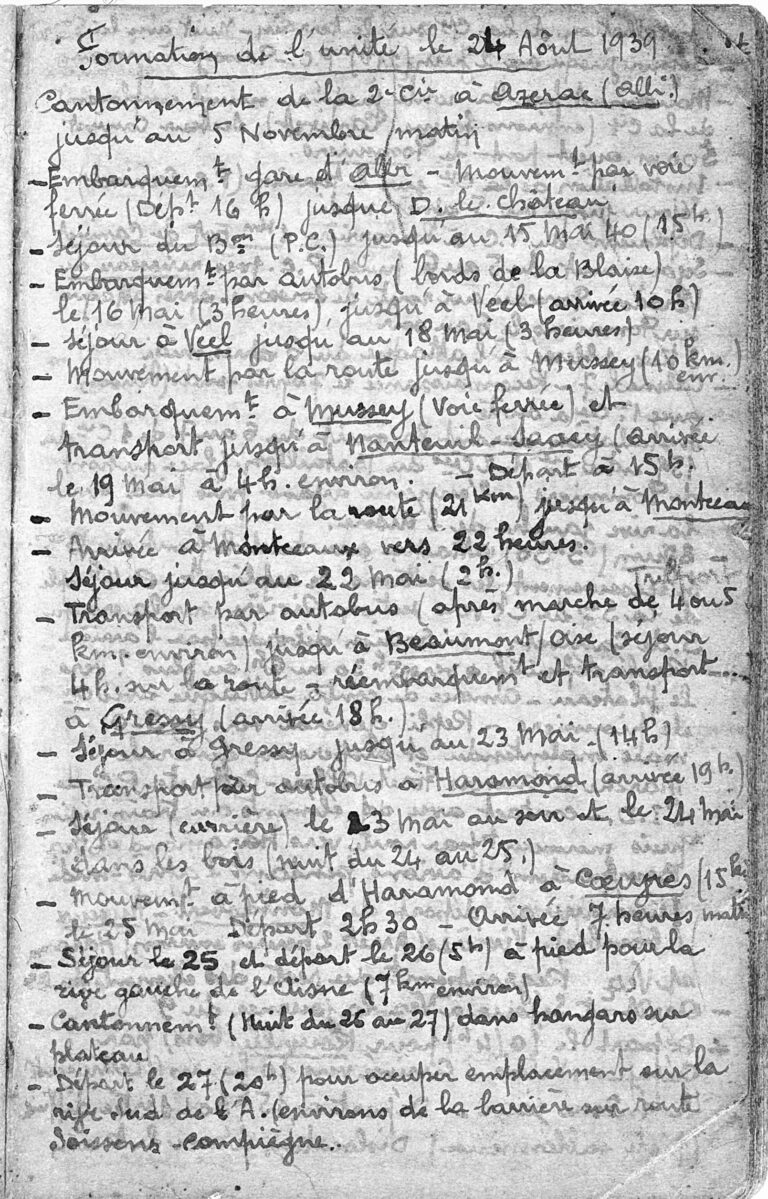 Formation de l'unité le 24 Août 1939
Cantonnement de la 2e Cie à Azerac (Albi.)
jusqu'au 5 Novembre matin
- Embarquemt gare d'Albi - Mouvemt par voie
ferrée (Dept 16 h) jusque D. le. Chateau
- Séjour du Bon (P.C.) jusqu'au 15 Mai 40 (15h.
- Embarquemt par autobus (bords de la Blaise)
le 16 Mai (3 heures) jusqu'à Véel (arrivée 10h)
- Séjour à Véel jusqu'au 18 Mai (3 heures)
- Mouvement par la route jusqu'à Mussey (10 km.
env.)
- Embarquemt à Mussey (Voie ferrée) et
transport jusqu'à Nanteuil-Saacy (arrivée
le 19 Mai à 4h. environ. - Départ à 15h.
- Mouvement par la route (21 km) jusqu'à Montceau
- Arrivée à Montceaux vers 22 heures.
Séjour jusqu'au 22 Mai (2h.)
- Transport par autobus (après marche de 4 ou 5
km. environ) jusqu'à Beaumont/Oise (séjour
4h. sur la route - réembarquemt et transport...
à Gressy (arrivée 18h.)
- Séjour à Gressy jusqu'au 23 Mai - (14h)
- Transport par autobus à Haramond (arrivée 19h.
- Séjour (carrière) le 23 Mai au soir et le 24 Mai
dans les bois (nuit du 24 au 25.)
- Mouvemt à pied d'Haramond à Cœuvres (15 k
le 25 Mai Départ 2h30 - Arrivée 7 heures mati
- Séjour le 25 et départ le 26 (5h) à pied pour la
rive gauche de l'Aisne (7 km environ)
- Cantonnemt (Nuit du 26 au 27) dans hangars sur
plateau
- Départ le 27 (20h) pour occuper emplacement sur la
rive Sud de l'A. (environs de la barrière sur route
Soissons-Compiègne..